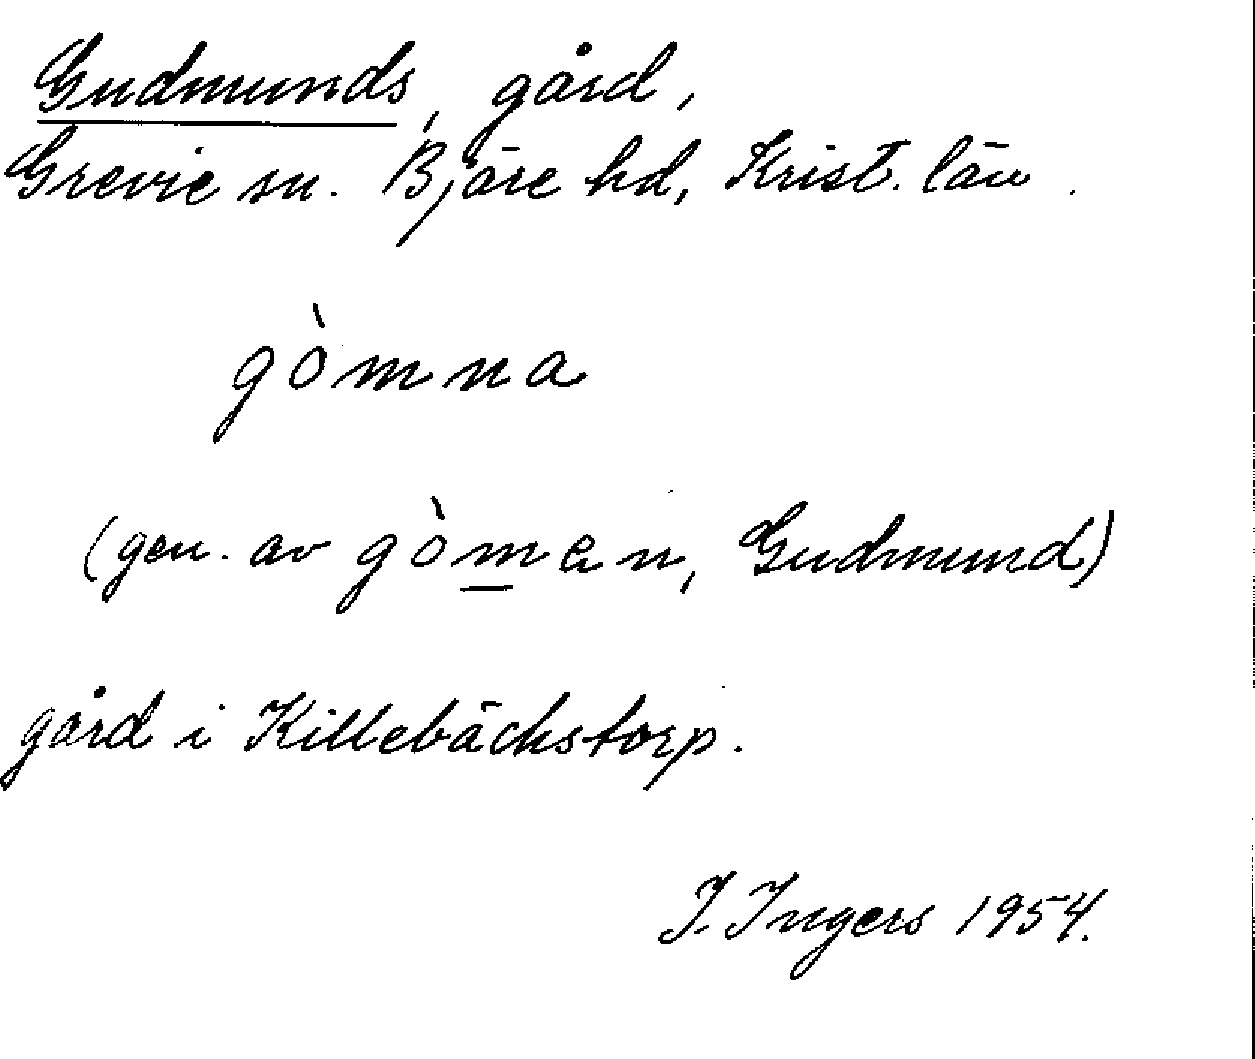 Gudmunds, gård,
Grevie sn. Bjäre hd, Krist. län.
gòmna
(gen. av gòmen, Gudmund)
gård i Killebäckstorp.
I. Ingers 1954.